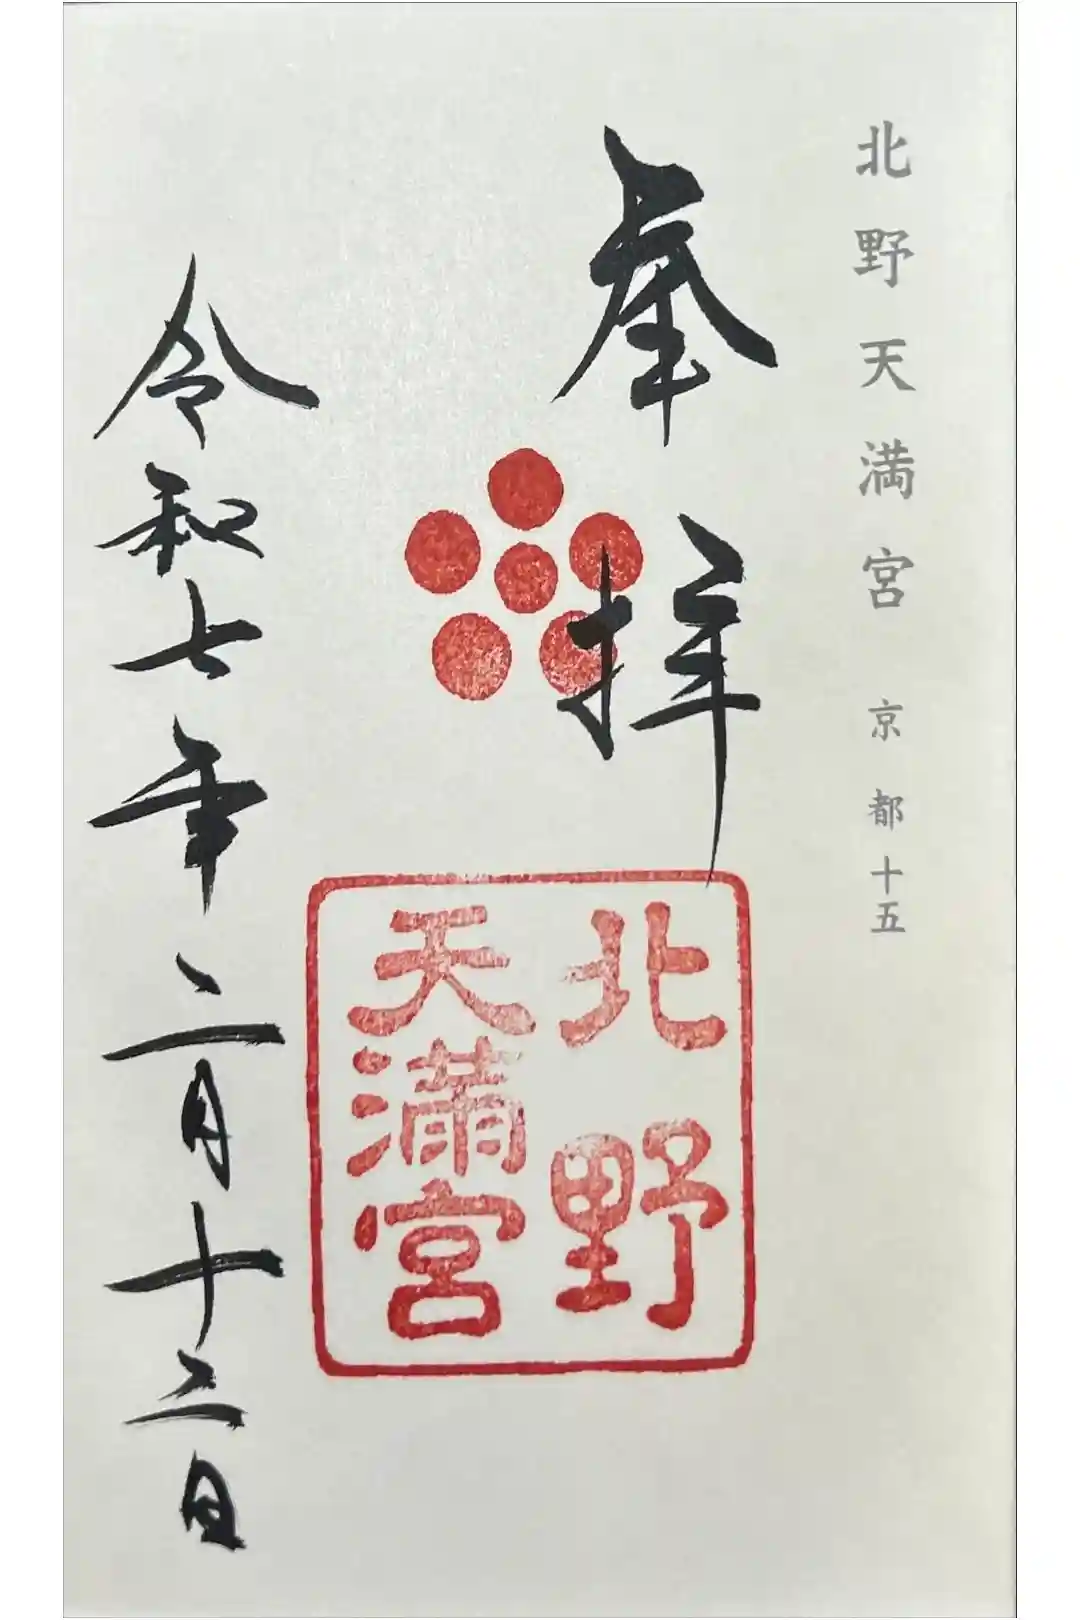 北野天満宮 京都十五
奉拝
北野
天滿宮
令和七年二月十二日